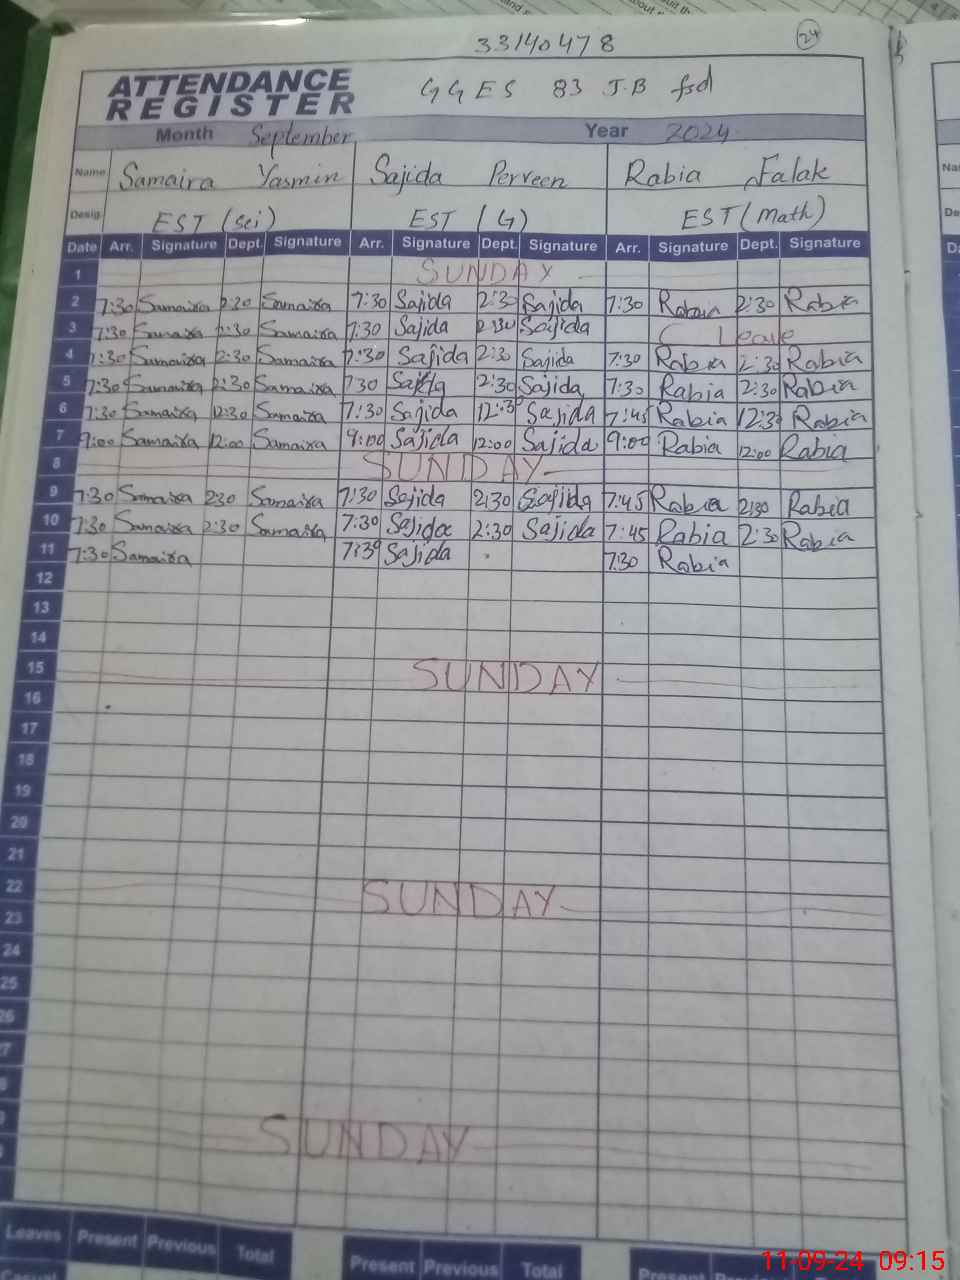 33140478 24
ATTENDANCE REGISTER GGES 83 J.B fsd
Month September Year 2024
Name Samaira Yasmin Sajida Perveen Rabia Falak
Desig. EST (Sci) EST (G) EST (Math)
Date Arr. Signature Dept. Signature Arr. Signature Dept. Signature Arr. Signature Dept. Signature
1 SUNDAY
2 7:30 Samaira 2:30 Samaira 7:30 Sajida 2:30 Sajida 7:30 Rabia 2:30 Rabia
3 7:30 Samaira 2:30 Samaira 7:30 Sajida 2:30 Sajida C Leave
4 7:30 Samaira 2:30 Samaira 7:30 Sajida 2:30 Sajida 7:30 Rabia 2:30 Rabia
5 7:30 Samaira 2:30 Samaira 730 Sajida 2:30 Sajida 7:30 Rabia 2:30 Rabia
6 7:30 Samaira 12:30 Samaira 7:30 Sajida 12:30 Sajida 7:45 Rabia 12:30 Rabia
7 9:00 Samaira 12:00 Samaira 9:00 Sajida 12:00 Sajida 9:00 Rabia 12:00 Rabia
8 SUNDAY
9 7:30 Samaira 2:30 Samaira 7:30 Sajida 2:30 Sajida 7:45 Rabia 2:30 Rabia
10 7:30 Samaira 2:30 Samaira 7:30 Sajida 2:30 Sajida 7:45 Rabia 2:30 Rabia
11 7:30 Samaira 7:30 Sajida 7:30 Rabia
12
13
14
15 SUNDAY
16
17
18
19
20
21
22 SUNDAY
23
24
25
26
SUNDAY
Leaves Present Previous Total Present Previous Total Present
Casual
11-09-24 09:15